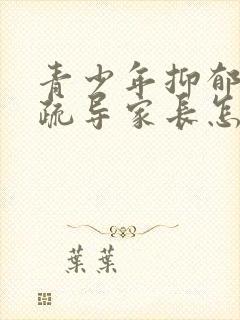 青少年抑郁
疏导家长怎
葉葉